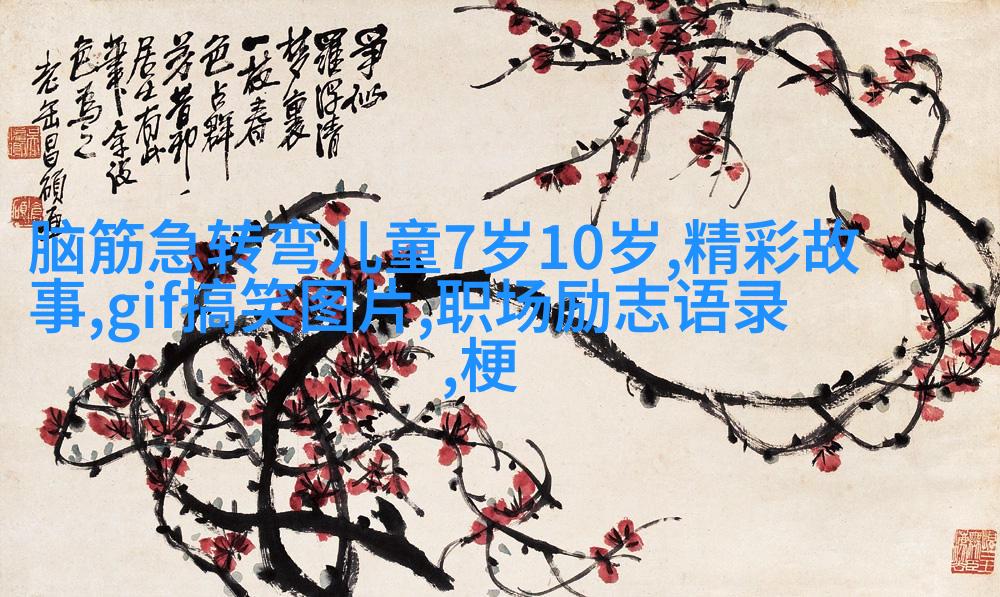 争似
羅浮清
梦裏
一枝春
色占群
芳昔邪
居士有此
筆下余仮
色為之
老缶昌碩
脑筋急转弯儿童7岁10岁,精彩故
事,gif搞笑图片,职场励志语录
,梗